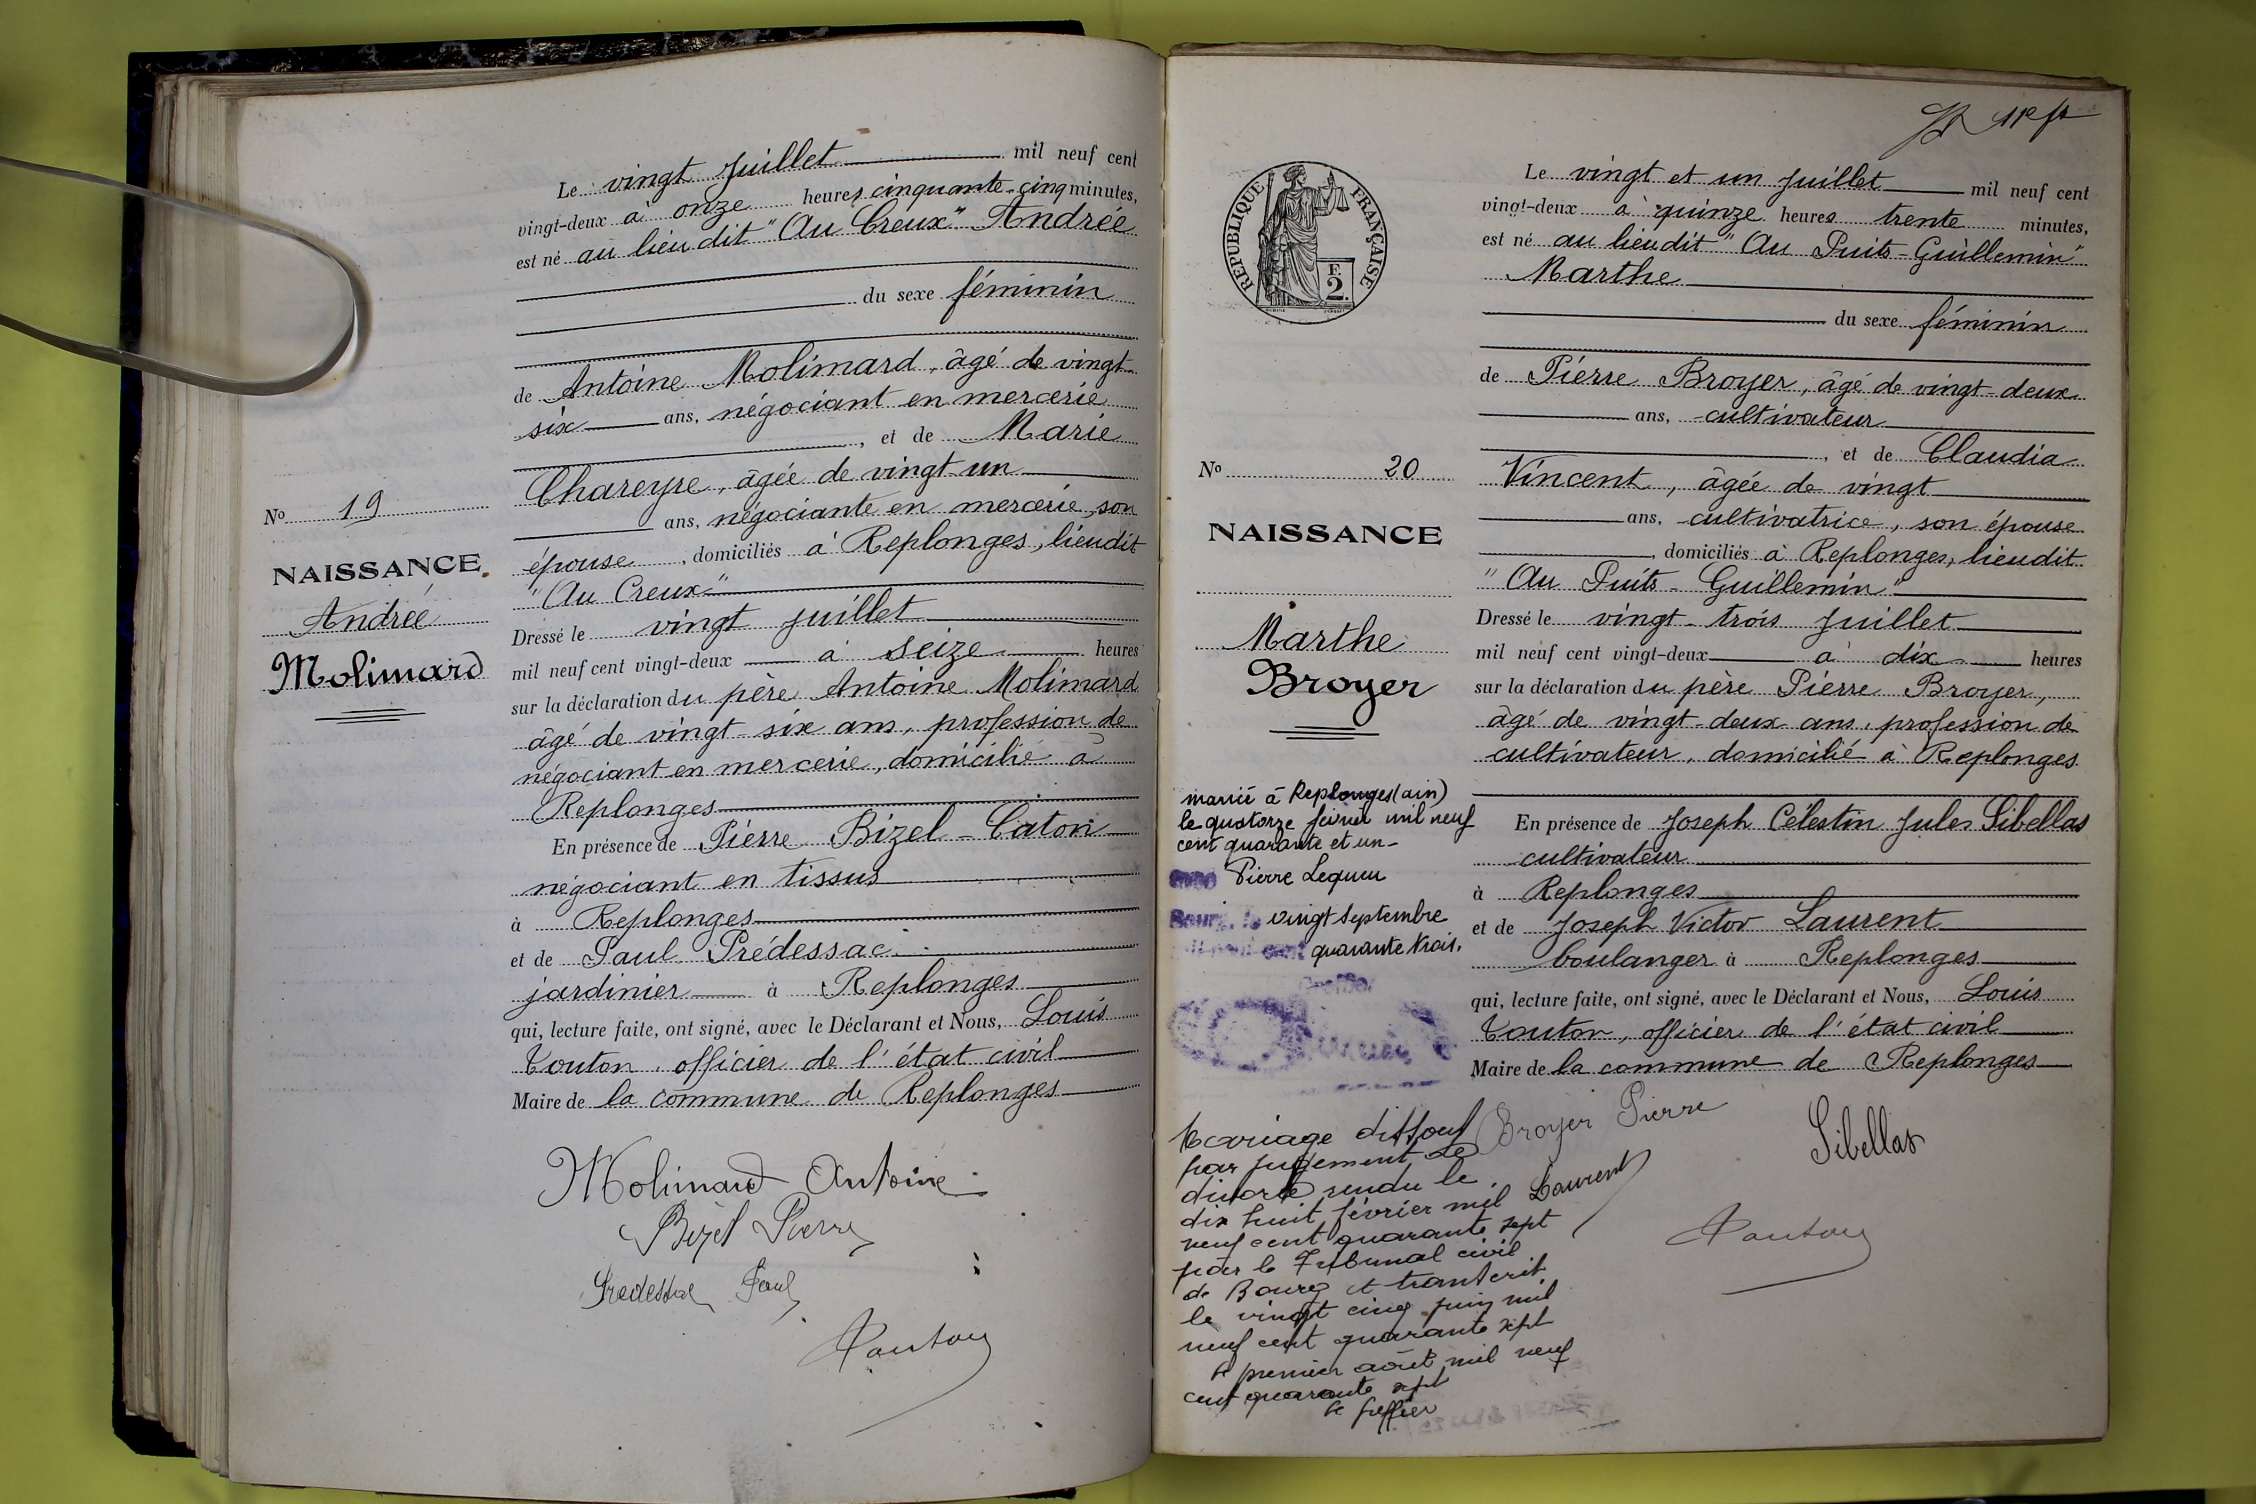 Le vingt Juillet mil neuf cent
vingt-deux à onze heures cinquante-cinq minutes,
est né au lieu dit "Au Creux" Andrée
du sexe féminin
de Antoine Molimard, âgé de vingt-
six ans, négociant en mercerie
, et de Marie
Chareyre, âgée de vingt-un
ans, négociante en mercerie, son
épouse, domiciliés à Replonges, lieudit
"Au Creux"
Dressé le vingt juillet
mil neuf cent vingt-deux à seize heures
sur la déclaration du père Antoine Molimard
âgé de vingt-six ans, profession de
négociant en mercerie, domicilié à
Replonges
En présence de Pierre Bizel-Caton
négociant en tissus
à Replonges
et de Paul Prédessac
jardinier à Replonges
qui, lecture faite, ont signé, avec le Déclarant et Nous, Louis
Touton, officier de l'état civil
Maire de la commune de Replonges
Molimard Antoine
Bizel Pierre
Predessac Paul
Touton
No 19
NAISSANCE
Andrée
Molimard
RÉPUBLIQUE FRANÇAISE
F.
2.
No 20
NAISSANCE
Marthe
Broyer
mariée à Replonges (ain)
le quatorze février mil neuf
cent quarante et un -
Pierre Lequeu
Bourg, le vingt septembre
mil neuf cent quarante trois.
Mariage dissous
par jugement de
divorce rendu le
dix huit février mil
neuf cent quarante sept
par le Tribunal civil
de Bourg et transcrit
le vingt cinq juin mil
neuf cent quarante sept
le premier août mil neuf
cent quarante sept
le greffier
Le vingt et un juillet mil neuf cent
vingt-deux à quinze heures trente minutes,
est né au lieu dit "Au Puits-Guillemin"
Marthe
du sexe féminin
de Pierre Broyer, âgé de vingt-deux
ans, cultivateur
, et de Claudia
Vincent, âgée de vingt
ans, cultivatrice, son épouse
, domiciliés à Replonges, lieudit
"Au Puits-Guillemin"
Dressé le vingt-trois juillet
mil neuf cent vingt-deux à dix heures
sur la déclaration du père Pierre Broyer,
âgé de vingt-deux ans, profession de
cultivateur, domicilié à Replonges
En présence de Joseph Célestin Jules Sibellas
cultivateur
à Replonges
et de Joseph Victor Laurent
boulanger à Replonges
qui, lecture faite, ont signé, avec le Déclarant et Nous, Louis
Touton, officier de l'état civil
Maire de la commune de Replonges
Broyer Pierre
Sibellas
Laurent
Touton